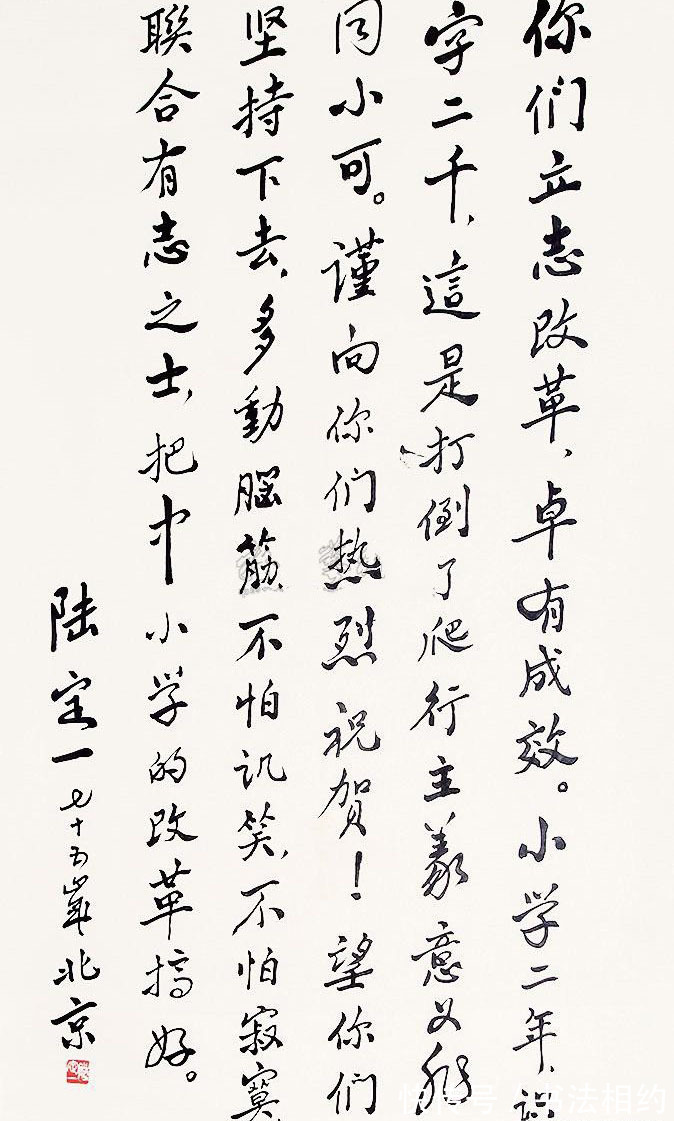 你们立志改革，卓有成效。小学二年，识
字二千，這是打倒了爬行主義意义非
同小可。谨向你们热烈祝贺！望你们
坚持下去，多動腦筋不怕讥笑，不怕寂寞
聯合有志之士，把中小学的改革搞好。
陆定一七十五歲北京
快传号/书法相约